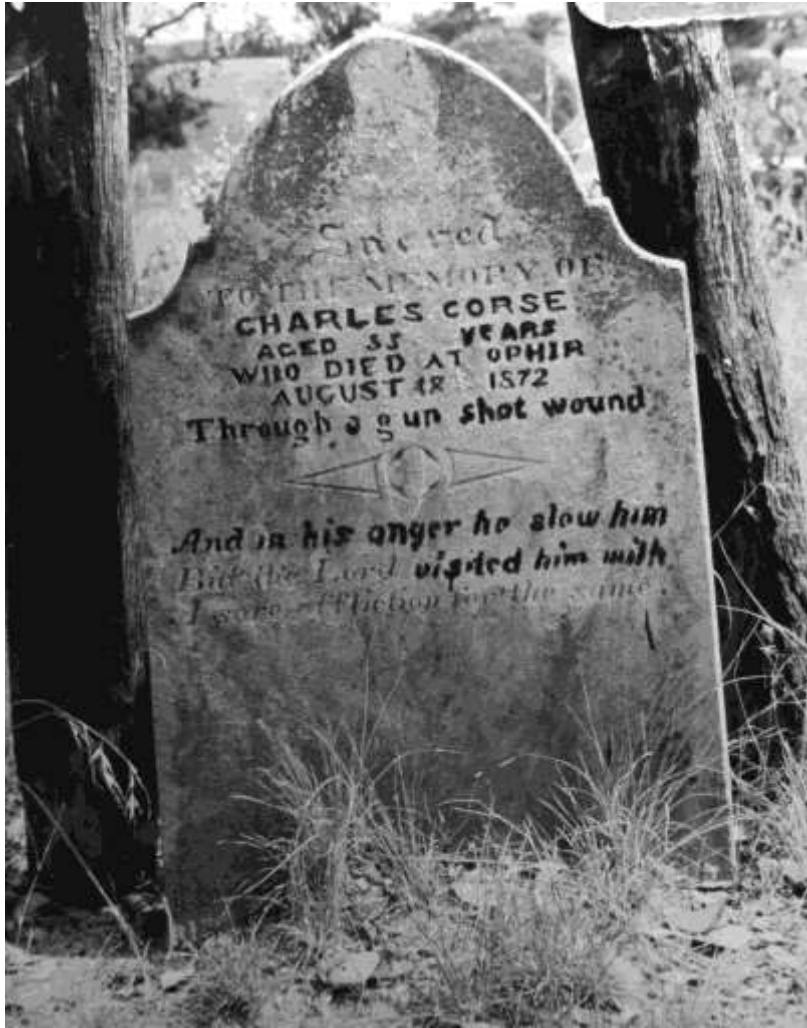 Sacred
TO THE MEMORY OF
CHARLES CORSE
AGED 35 YEARS
WHO DIED AT OPHIR
AUGUST 18 1872
Through a gun shot wound
And in his anger he slow him
But the Lord visited him with
sore affliction for the same.